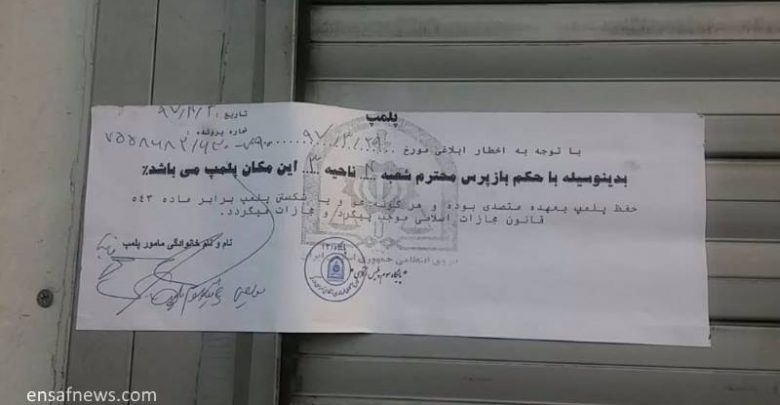 تاریخ : ۹۷/۳/
شماره پرونده :
پلمپ
با توجه به اخطار ابلاغی مورخ ۹۷/۳/۲۹
بدینوسیله با حکم بازپرس محترم شعبه ناحیه این مکان پلمپ می باشد٪
حفظ پلمپ بعهده متصدی بوده و هر گونه و یا شکستن پلمپ برابر ماده ۵۴۳
قانون مجازات اسلامی موجب پیگرد و مجازات میگردد.
نام و نام خانوادگی مامور پلمپ
نیروی انتظامی جمهوری اسلامی
ensafnews.com